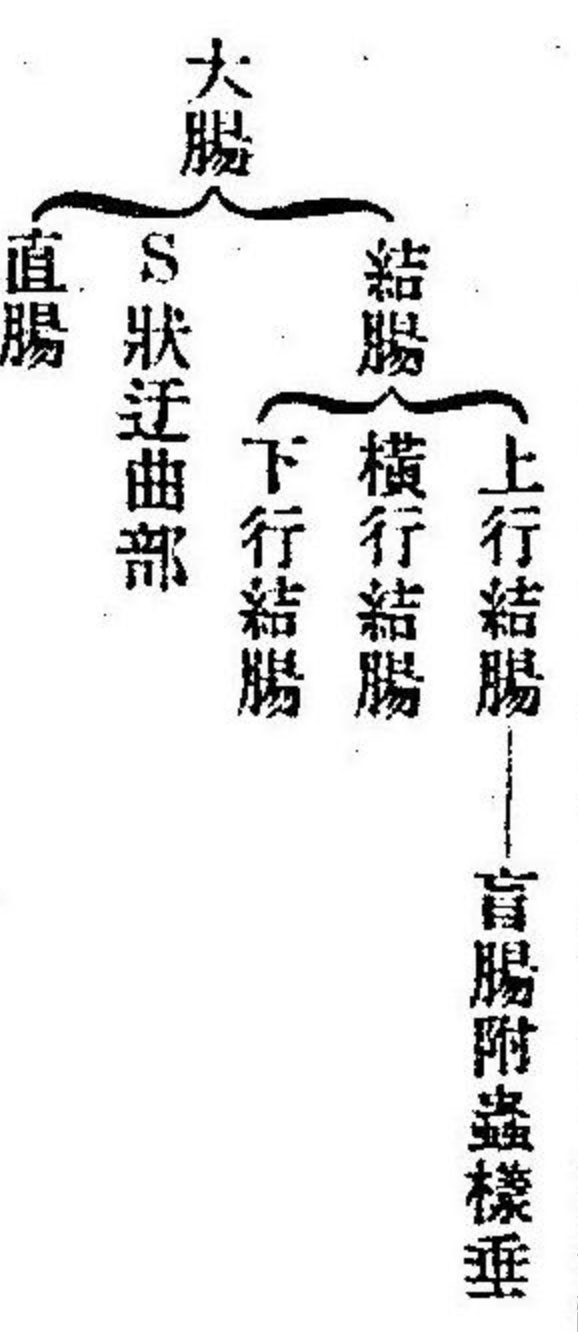 大腸
結腸
上行結腸
盲腸附蟲樣垂
橫行結腸
下行結腸
S狀迂曲部
直腸